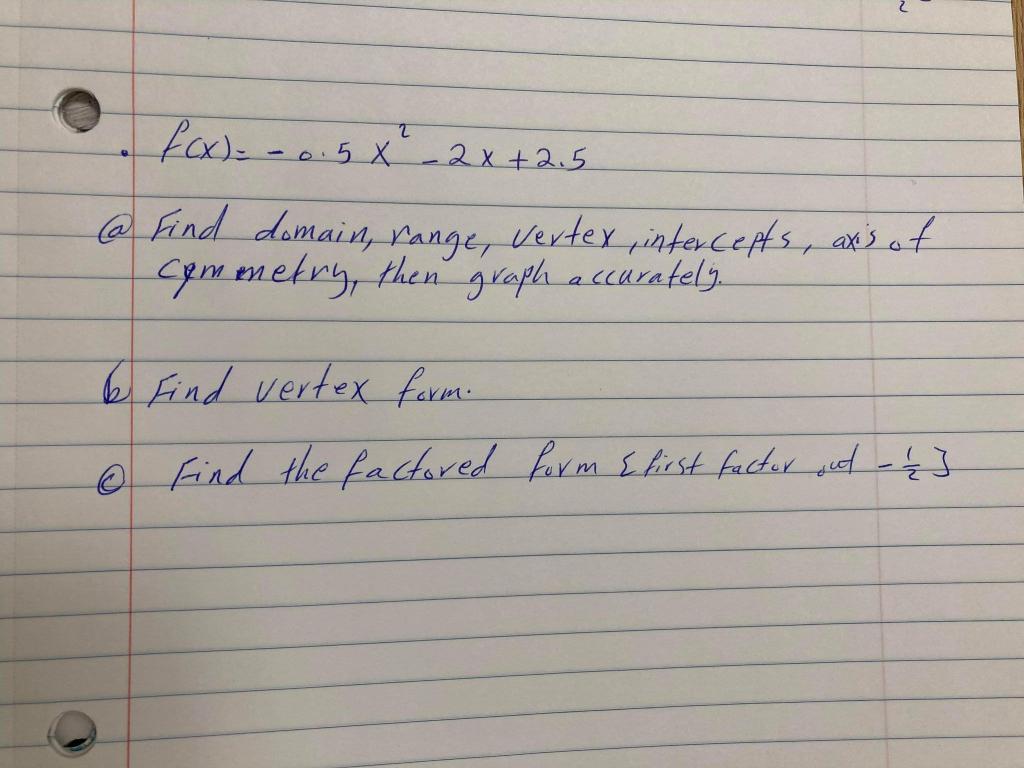 f(x)= - 0.5 x² - 2x + 2.5
ⓐ Find domain, range, vertex, intercepts, axis of
cymmetry, then graph accurately.
ⓑ Find vertex form.
ⓒ Find the factored form {first factor out - 1/2}